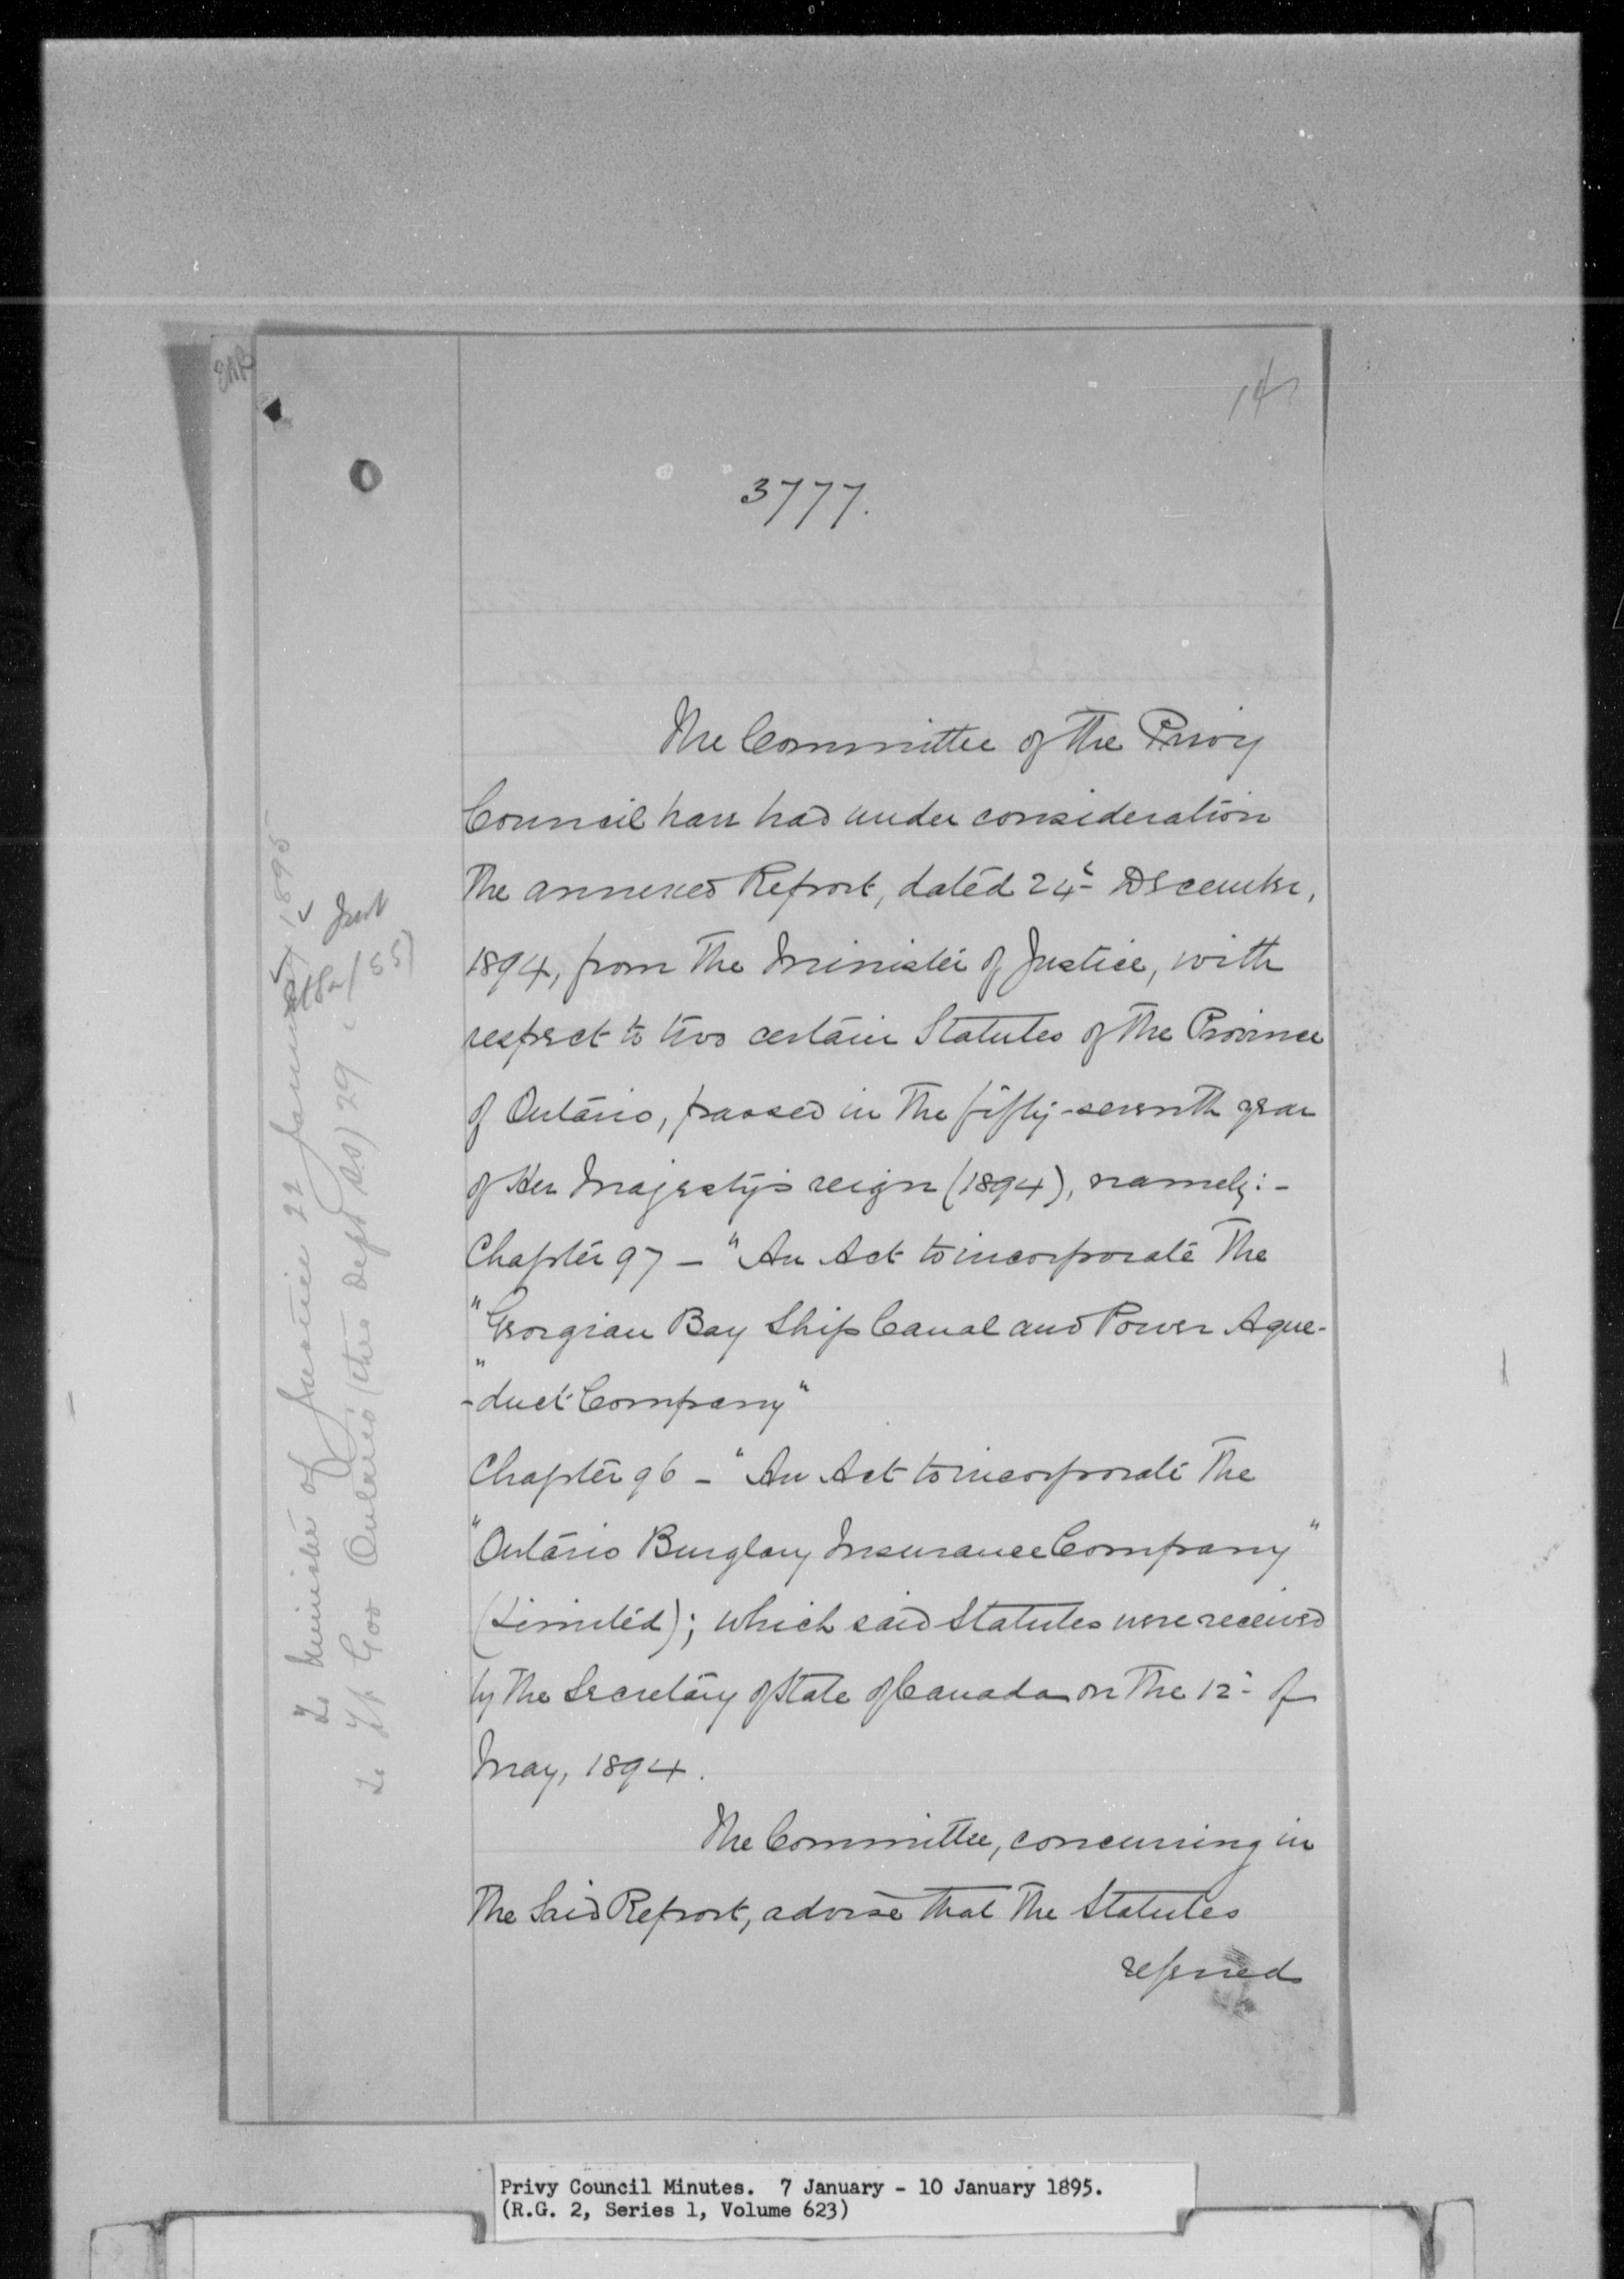 EAB
147
3777.
The Committee of the Privy
Council have had under consideration
the annexed Report, dated 24th December,
1894, from the Minister of Justice, with
respect to two certain Statutes of the Province
of Ontario, passed in the fifty-seventh year
of Her Majesty's reign (1894), namely:-
Chapter 97 - "An Act to incorporate the
"Georgian Bay Ship Canal and Power Aque-
"-duct Company"
Chapter 96 - "An Act to incorporate the
"Ontario Burglary Insurance Company"
(Limited); which said Statutes were received
by the Secretary of State of Canada on the 12th of
May, 1894.
The Committee, concurring in
the said Report, advise that the Statutes
referred
To Minister of Justice 22 January 1895
To Lt Gov Ontario (thro Dept S.S) 29
Privy Council Minutes. 7 January - 10 January 1895.
(R.G. 2, Series 1, Volume 623)